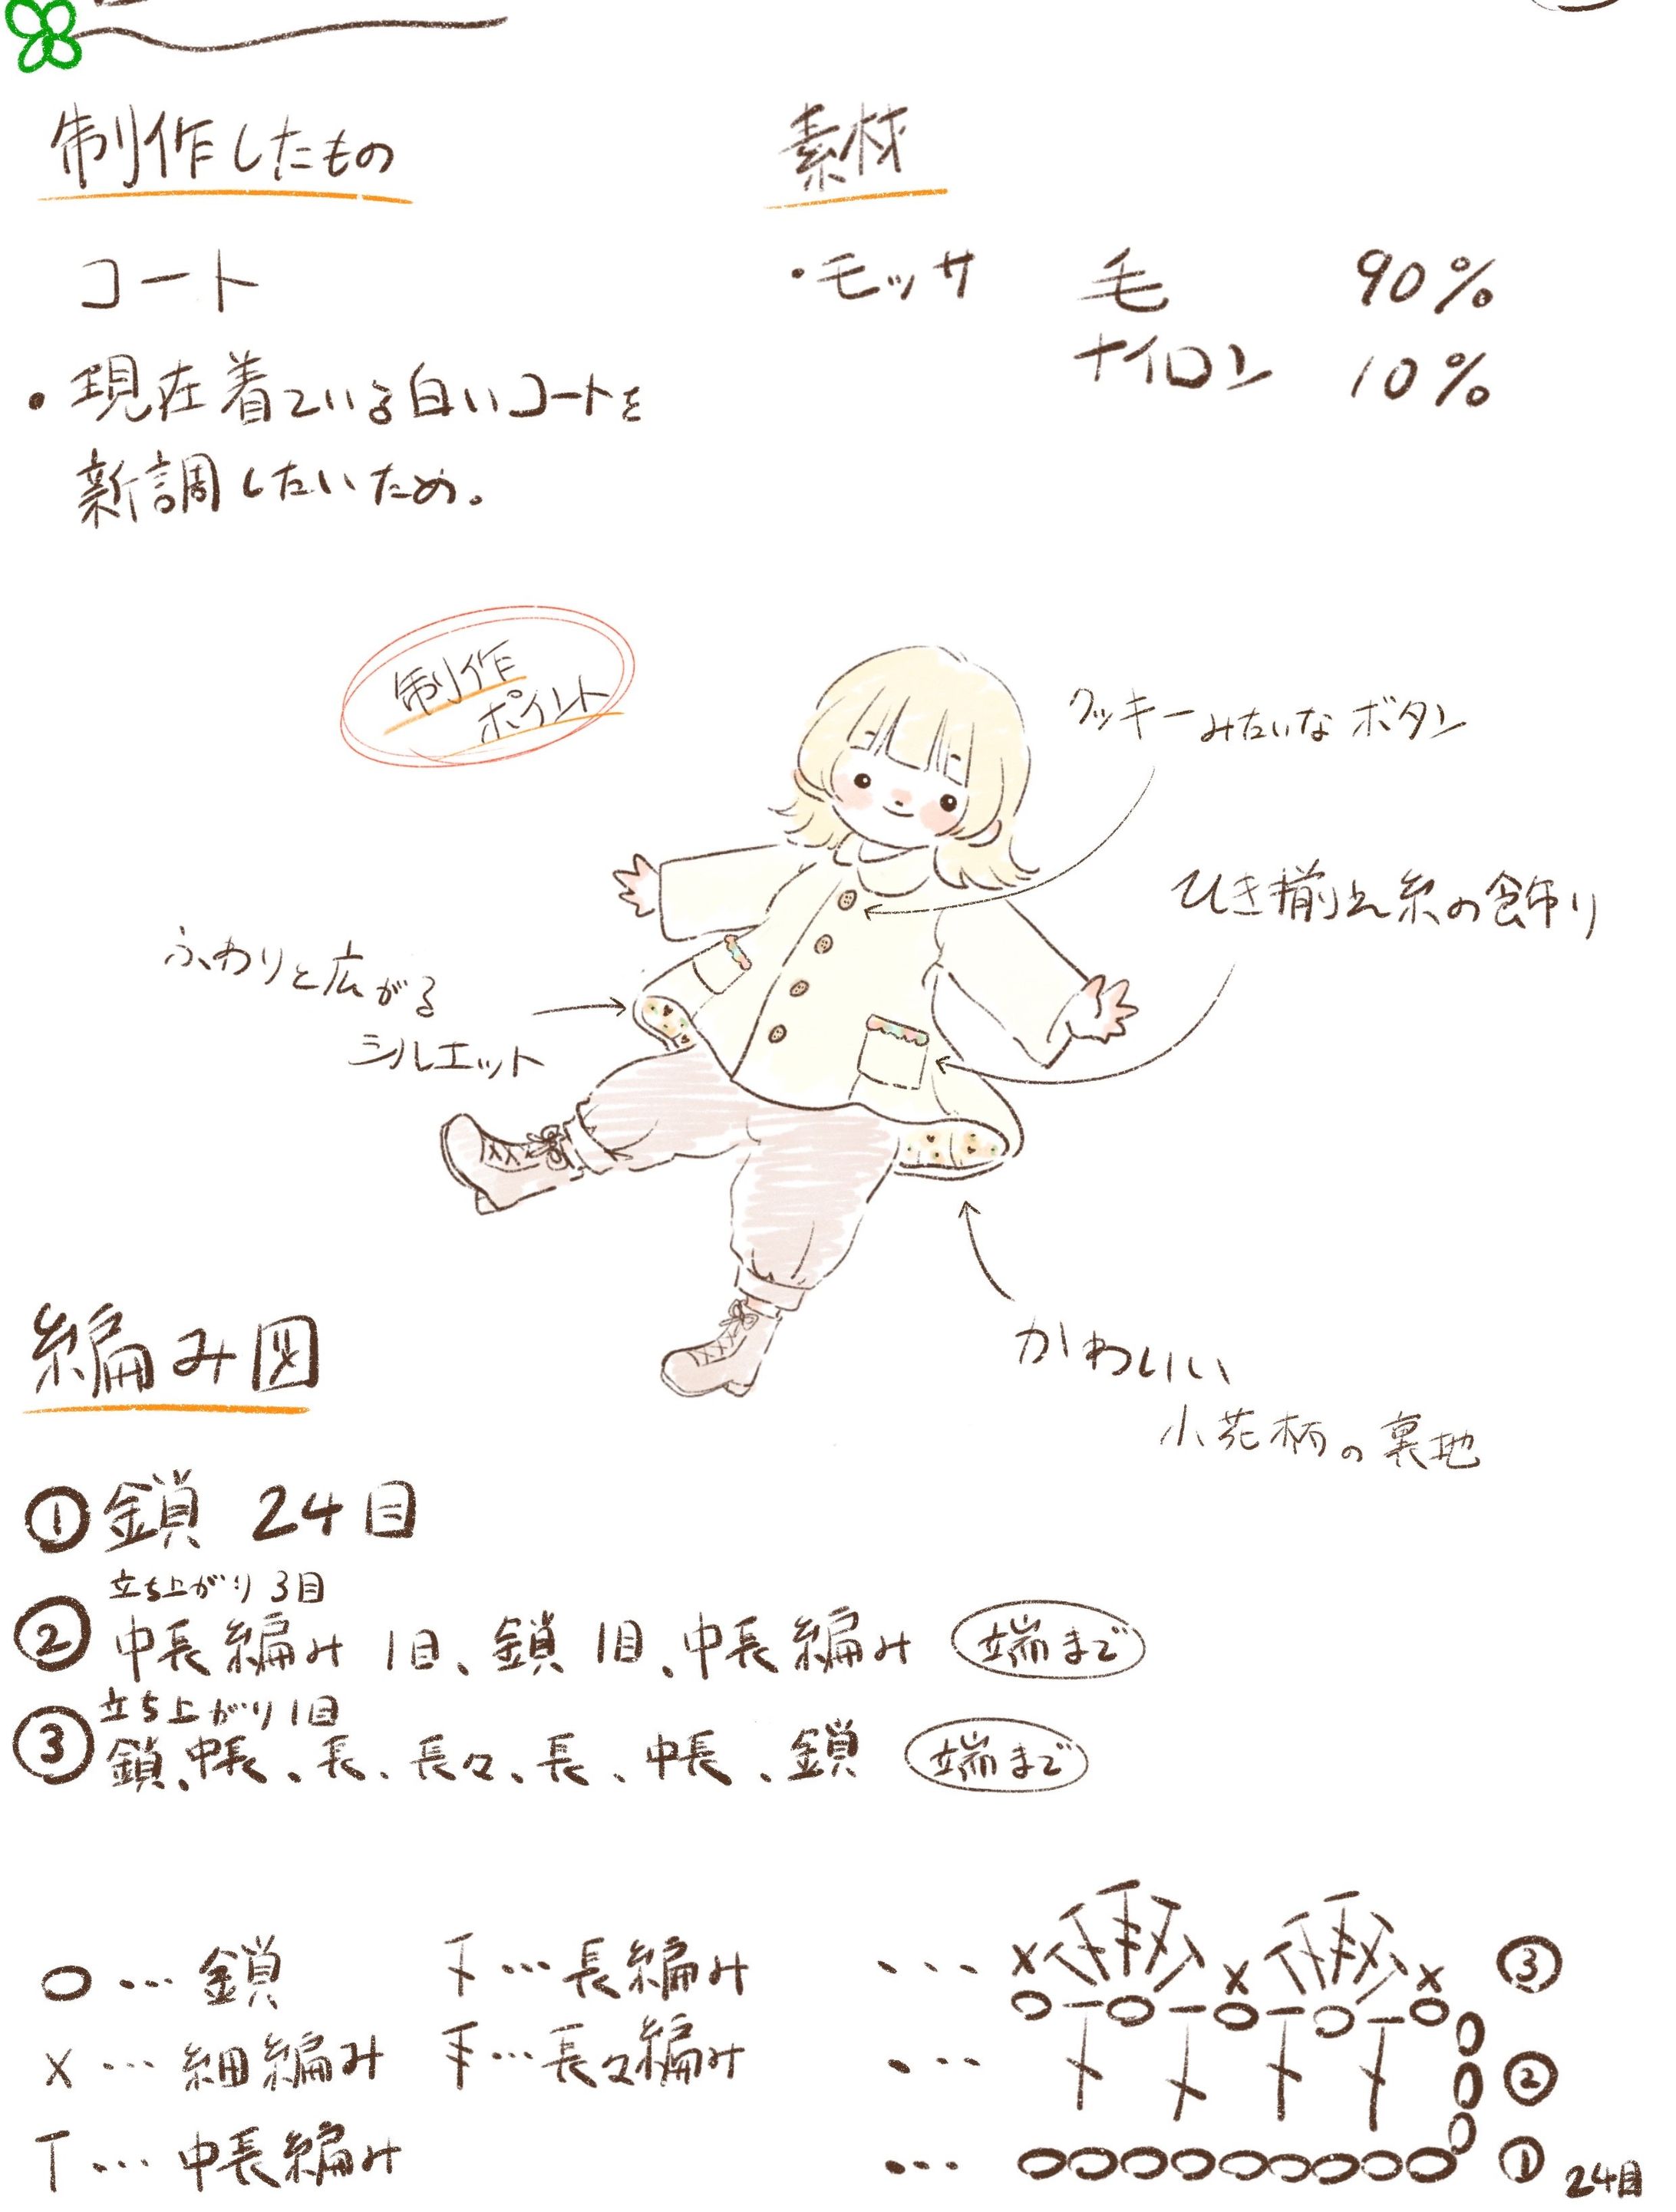 制作したもの
コート
・現在着ている白いコートを
新調したいため。
素材
・モッサ 毛 90%
ナイロン 10%
制作
ポイント
クッキーみたいなボタン
ひき揃え糸の飾り
ふわりと広がる
シルエット
かわいい
小花柄の裏地
編み図
①鎖 24目
立ち上がり 3目
②中長編み 1目、鎖 1目、中長編み 端まで
立ち上がり 1目
③鎖、中長、長、長々、長、中長、鎖 端まで
○…鎖
×…細編み
T…中長編み
…長編み
…長々編み
… ③
… ②
… ① 24目